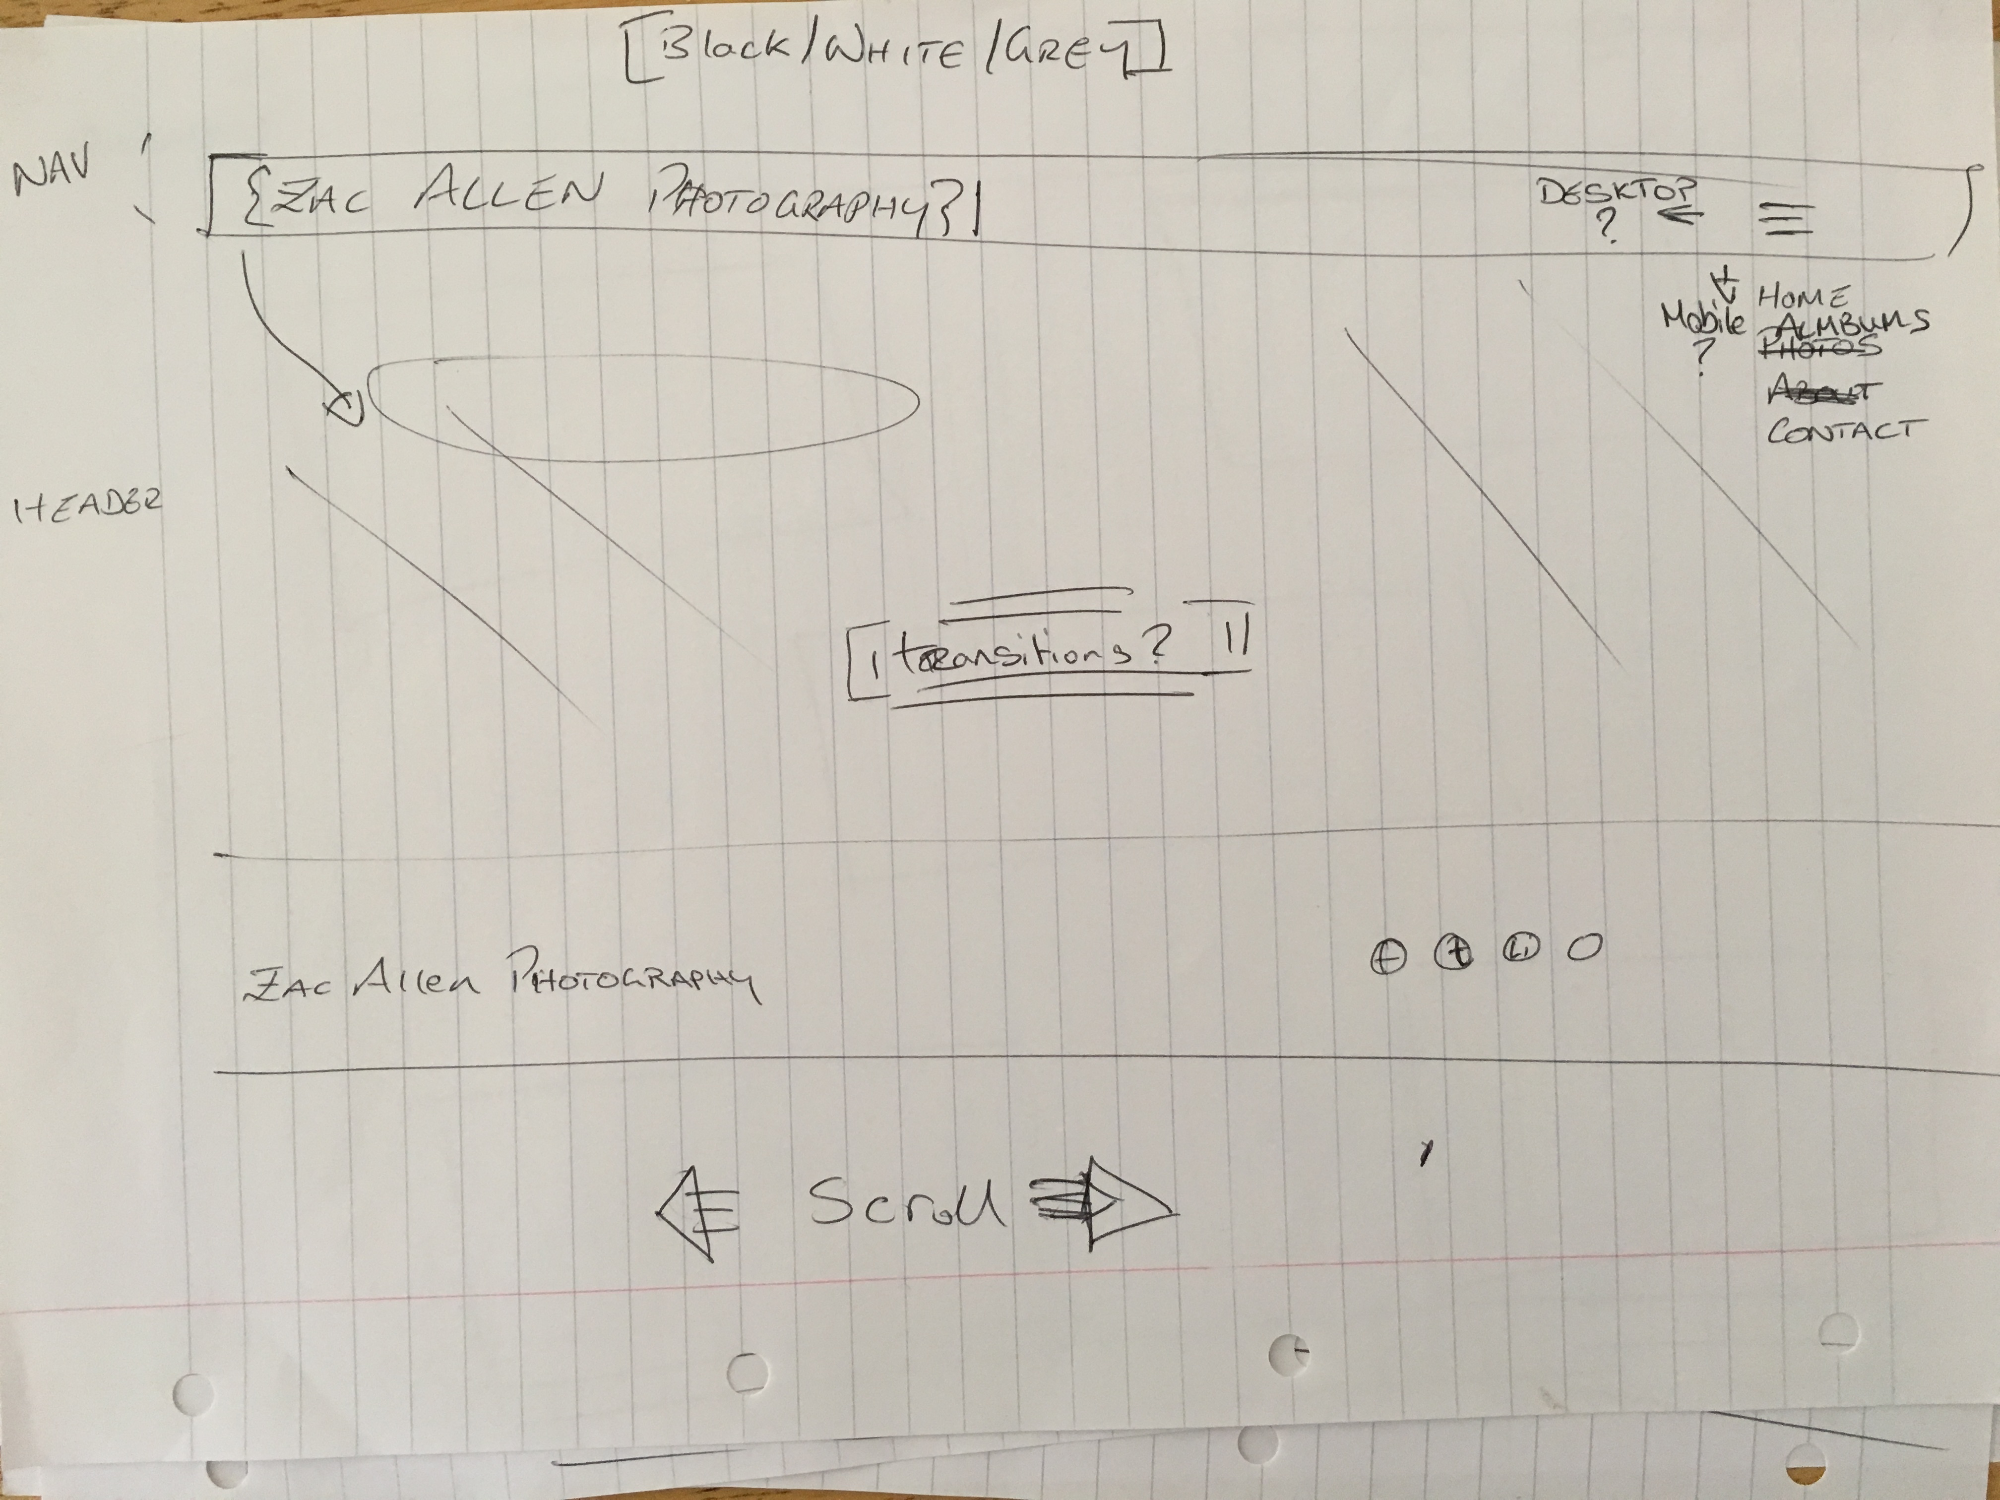 [Black/WHITE/GREY]
NAV
{ZAC ALLEN PHOTOGRAPHY}
DESKTOP
?
HOME
Mobile
?
ALMBUMS
PHOTOS
ABOUT
CONTACT
HEADER
transitions?
ZAC Allen PHOTOGRAPHY
f t in
Scroll